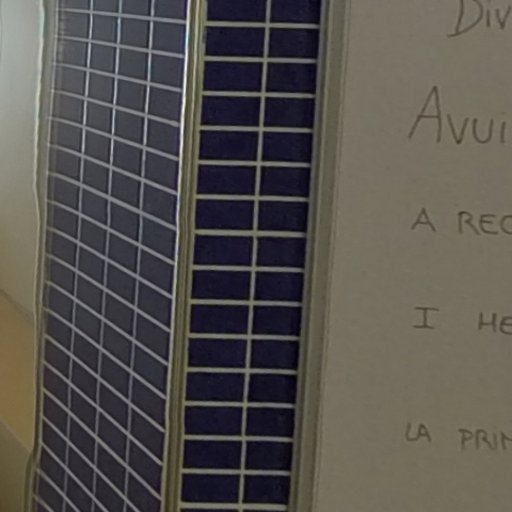 Div
Avui
A REC
I HE
LA PRIM